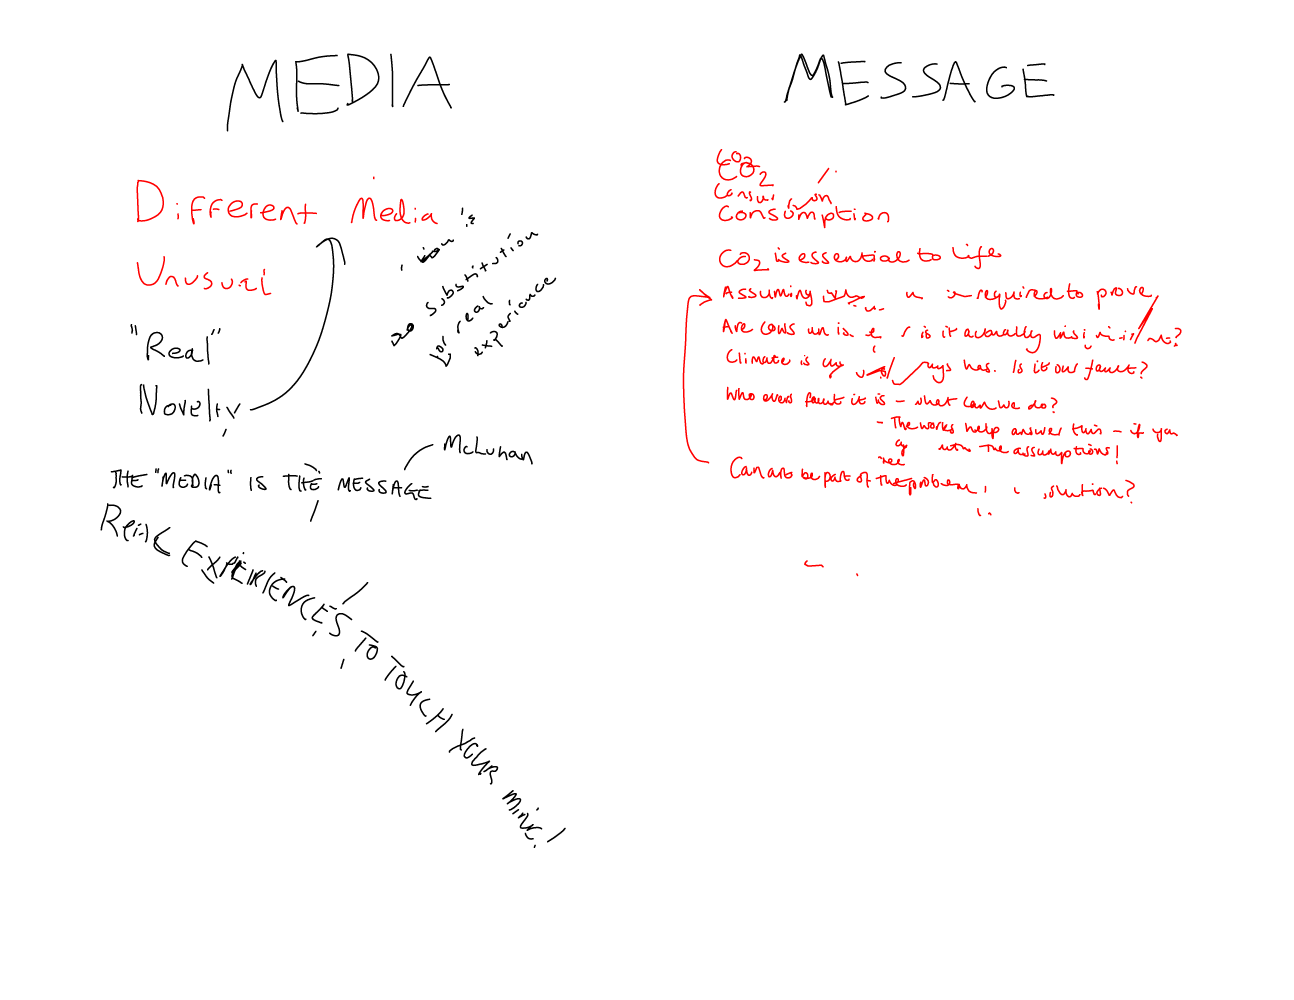 MEDIA
Different Media
Unusual
"Real"
Novelty
is
no substitution
for real
experience
McLuhan
THE "MEDIA" IS THE MESSAGE
Real EXPERIENCES TO TOUCH YOUR
MESSAGE
CO2
CO2
Consumption
CO2 is essential to life
Assuming required to prove
Are is it actually
Climate is has. Is it our fault?
Who evers fault it is - what can we do?
- The works help answer this - if you
agree with the assumptions!
Can art be part of the problem solution?